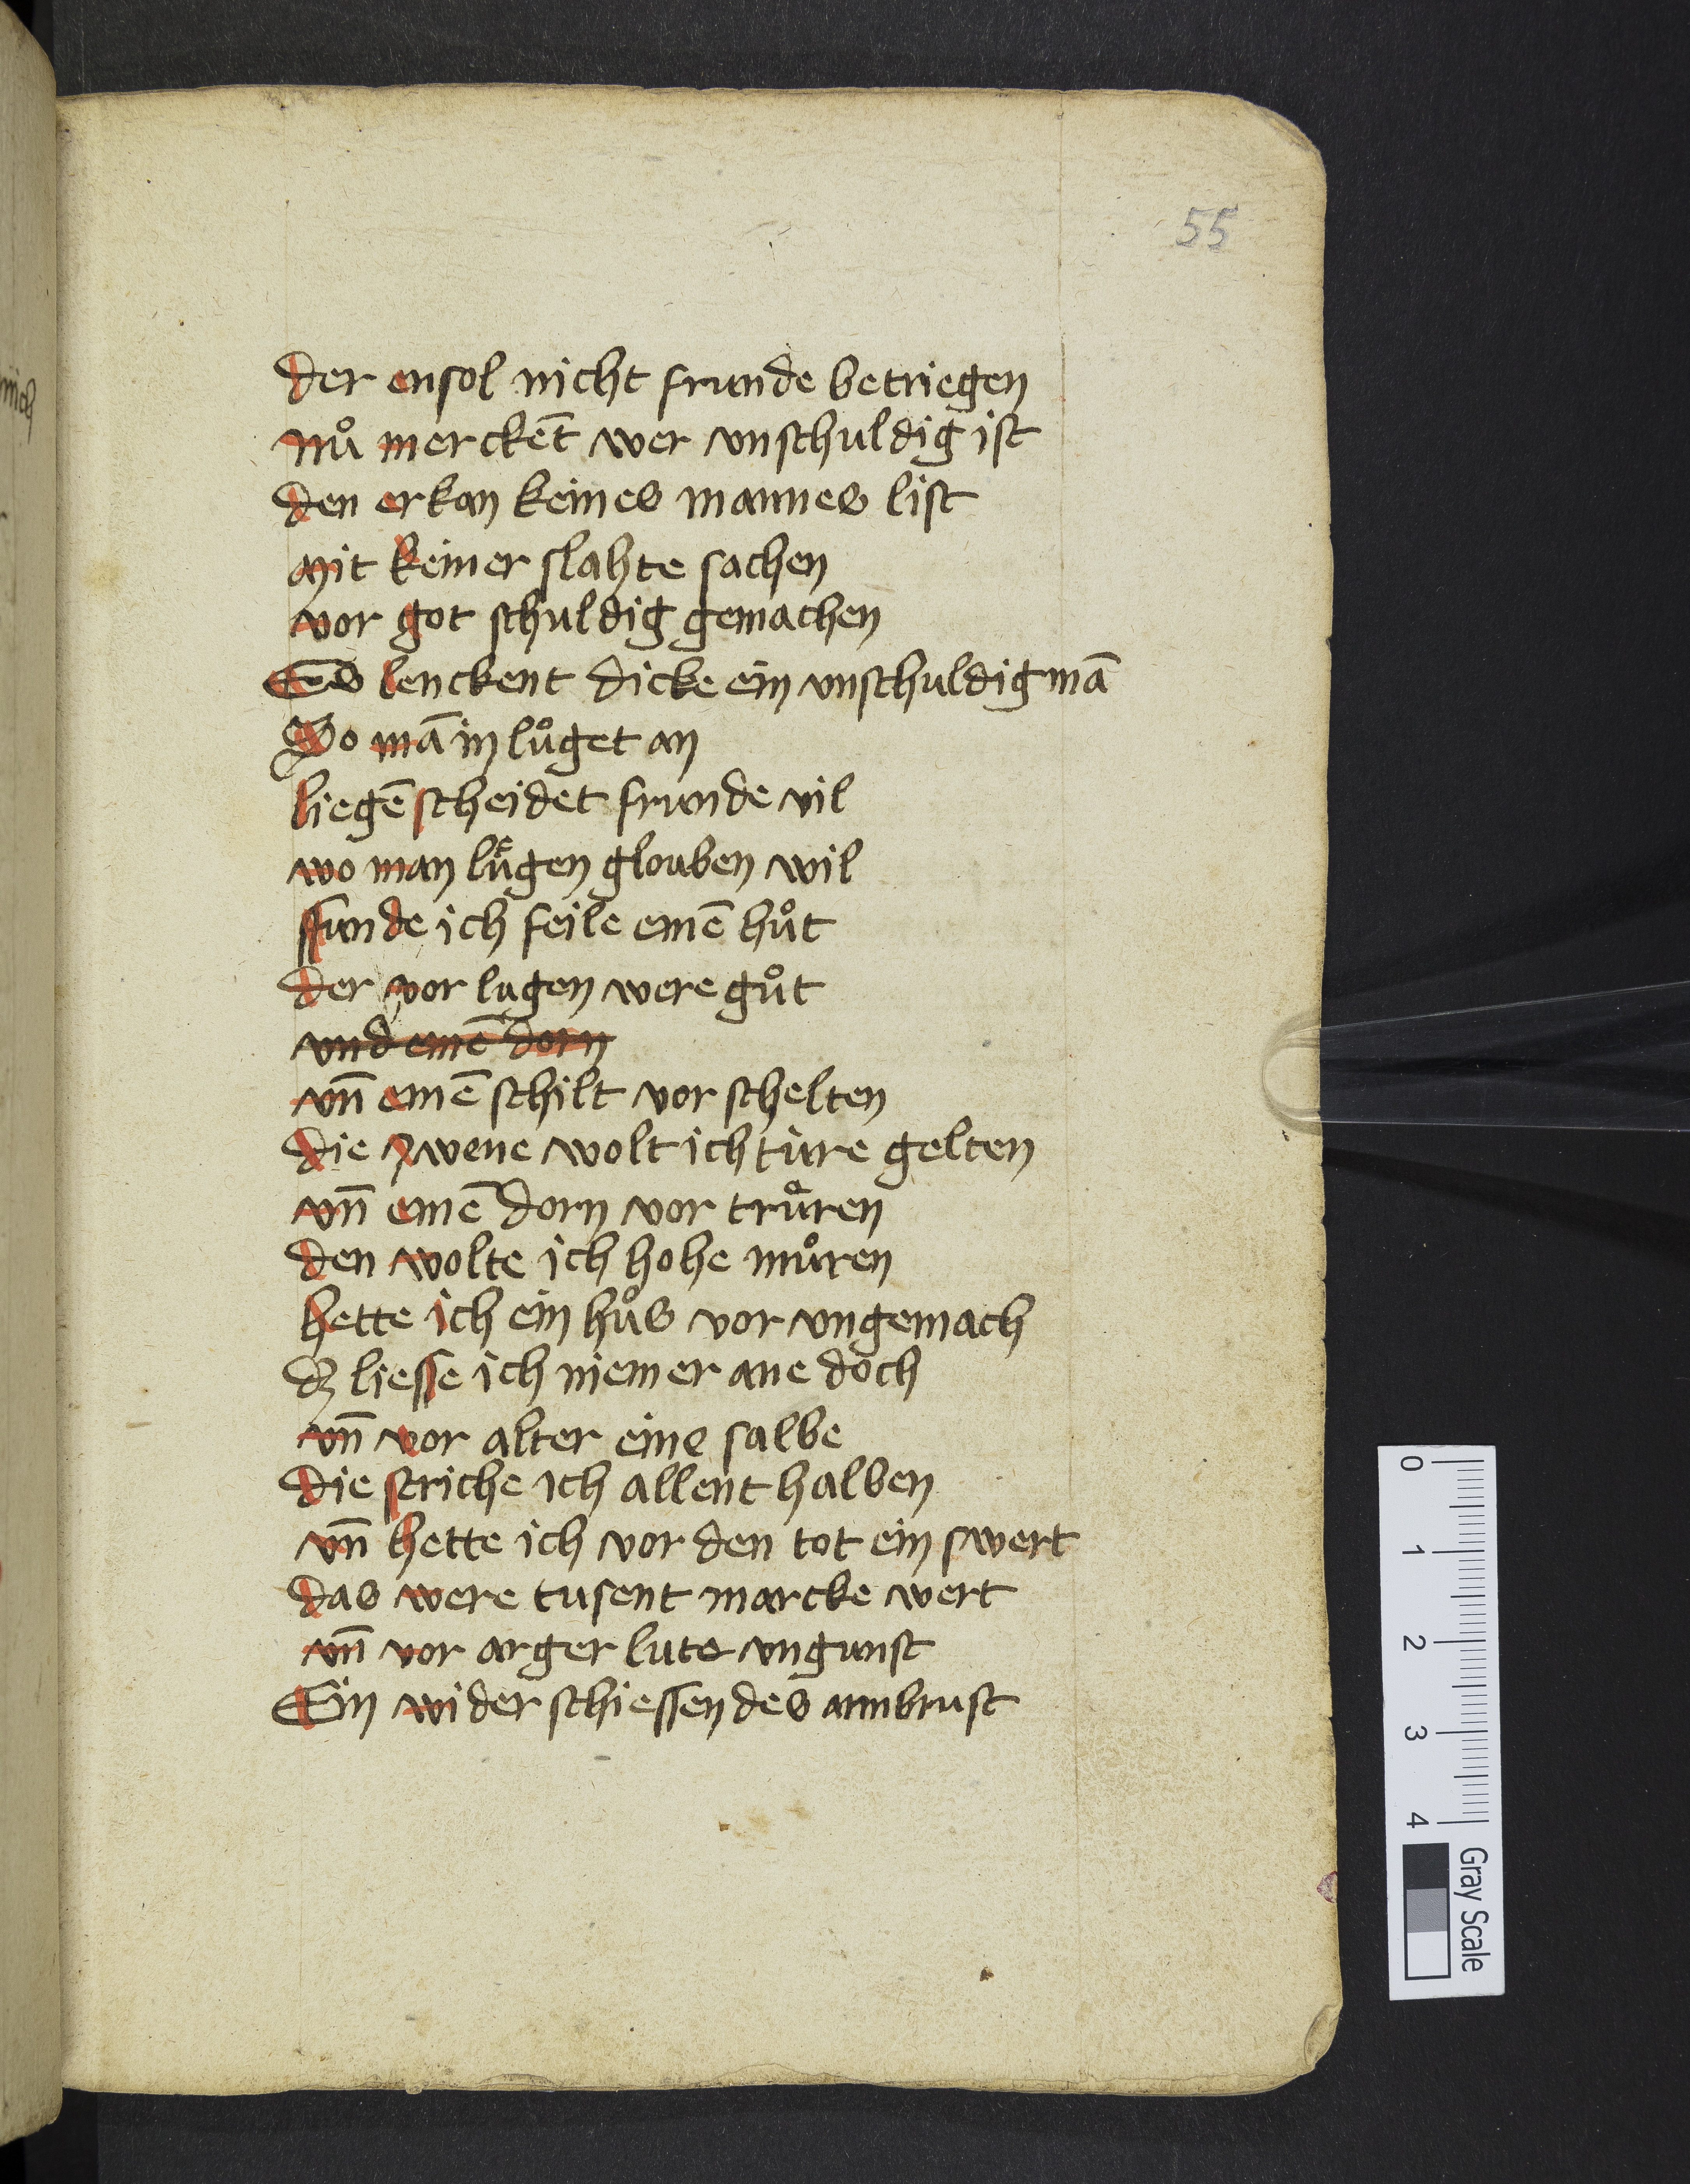 55
der ensol nicht frunde betriegen
nuͦ merckēt wer vnschuldig ist
den erkan keines mannes list
mit keiner slahte sachen
vor got schuldig gemachen
Es lenckent dicke ein vnschuldig mā
So mā in luͦget an
liegē scheidet frunde vil
wo man luͤgen glouben wil
ffunde ich feile einē huͦt
der vor lugen were guͦt
vnd einē dorn
vn̄ einē schilt vor schelten
die zwene wolt ich ture gelten
vn̄ einē dorn vor truͦren
den wolte ich hohe muͦren
hette ich ein huͦs vor vngemach
dz liesse ich niemer ane doch
vn̄ vor alter eine salbe
die striche ich allent halben
vn̄ hette ich vor den tot ein swert
das were tusent marcke wert
vn̄ vor arger lute vngunst
Ein wider schiessendes armbrust
0 1 2 3 4
Gray Scale